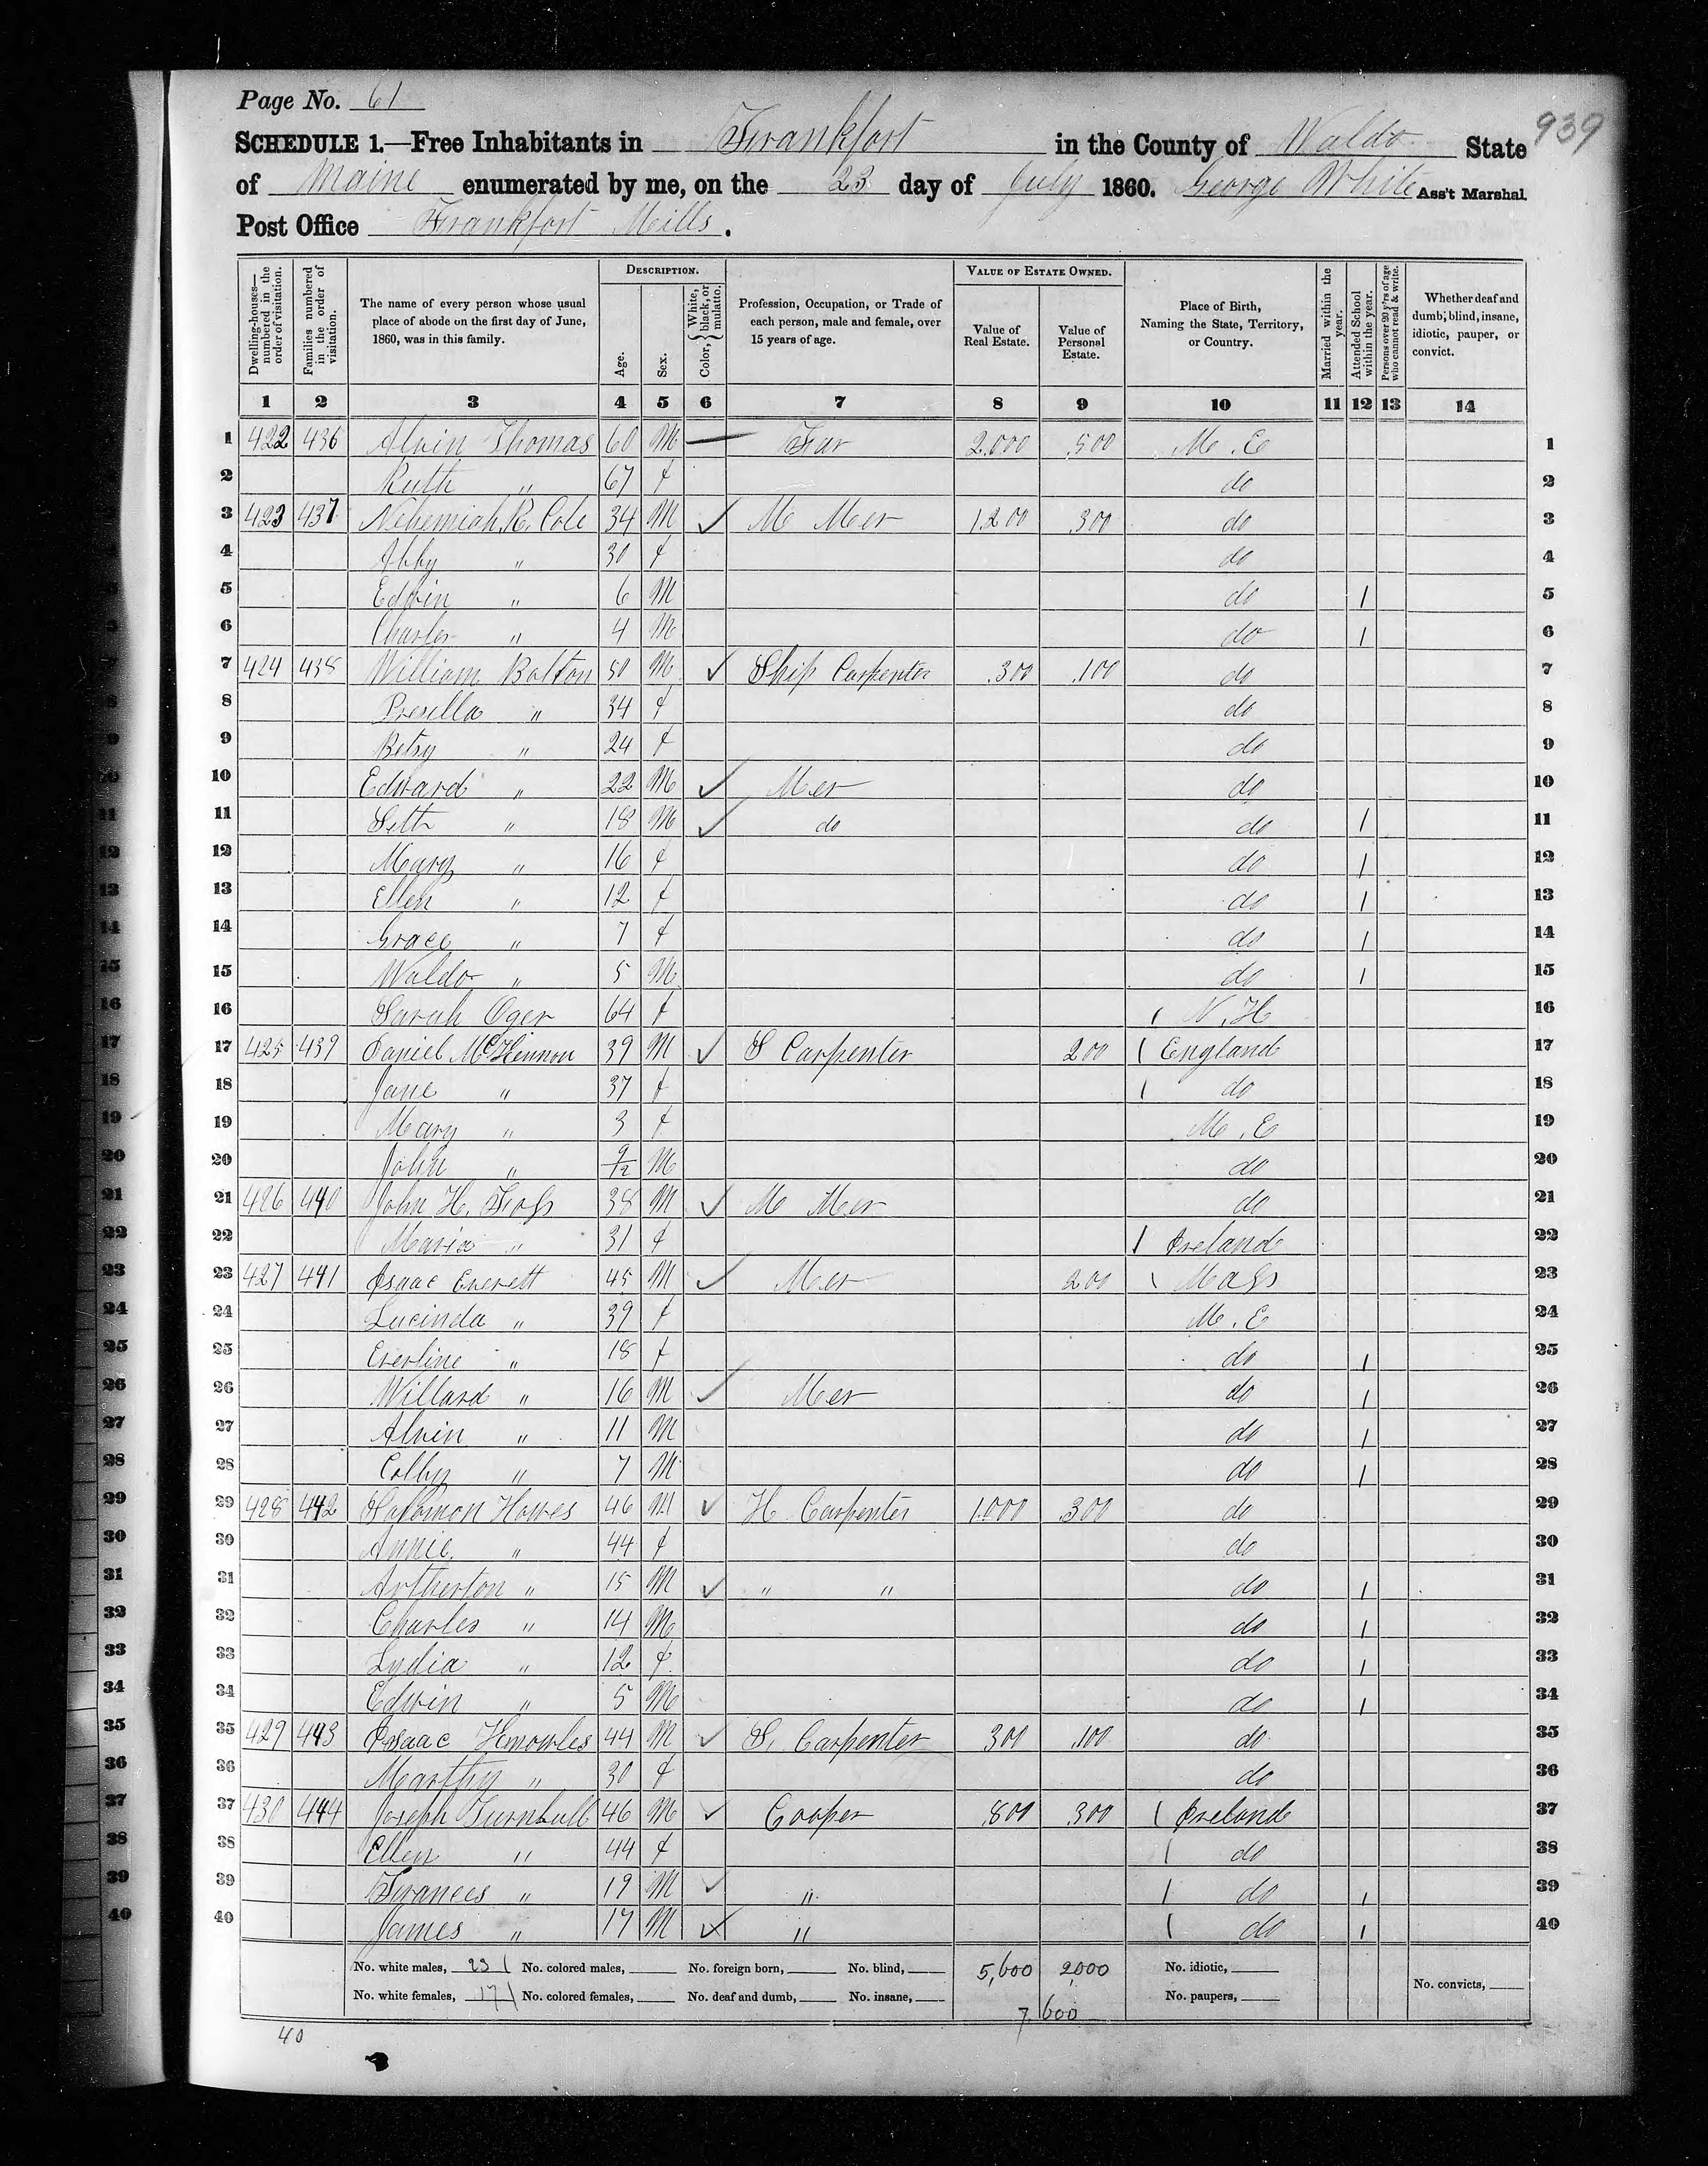 Page No. 61
939
SCHEDULE 1.—Free Inhabitants in Frankfort in the County of Waldo State
of Maine enumerated by me, on the 23 day of July 1860. George White Ass't Marshal
Post Office Frankfort Mills.
Dwelling-houses—numbered in the order of visitation. Families numbered in the order of visitation. The name of every person whose usual place of abode on the first day of June, 1860, was in this family. DESCRIPTION. Age. Sex. Color, White, black, or mulatto. Profession, Occupation, or Trade of each person, male and female, over 15 years of age. VALUE OF ESTATE OWNED. Value of Real Estate. Value of Personal Estate. Place of Birth, Naming the State, Territory, or Country. Married within the year. Attended School within the year. Persons over 20 y'rs of age who cannot read & write. Whether deaf and dumb, blind, insane, idiotic, pauper, or convict.
1 2 3 4 5 6 7 8 9 10 11 12 13 14
1 422 436 Alvin Thomas 60 M — Far 2.000 .500 M.E 1
2 Ruth " 67 f do 2
3 423 437 Nehemiah R. Cole 34 M ✓ M Mer 1.200 .300 do 3
4 Abby " 30 f do 4
5 Edwin " 6 M do 1 5
6 Charles " 4 M do 1 6
7 424 438 William Bolton 50 M ✓ Ship Carpenter .300 .100 do 7
8 Presella " 34 f do 8
9 Betsy " 24 f do 9
10 Edward " 22 M ✓ Mer do 10
11 Seth " 18 M ✓ do do 1 11
12 Mary " 16 f do 1 12
13 Ellen " 12 f do 1 13
14 Grace " 7 f do 1 14
15 Waldo " 5 M do 1 15
16 Sarah Oger 64 f 1 N.H 16
17 425 439 Daniel McKinnon 39 M ✓ S Carpenter 200 1 England 17
18 Jane " 37 f 1 do 18
19 Mary " 3 f M.E 19
20 John " 9/12 M do 20
21 426 440 John H. Foss 38 M ✓ M Mer do 21
22 Maria " 31 f 1 Ireland 22
23 427 441 Isaac Everett 45 M ✓ Mer 200 1 Mass 23
24 Lucinda " 39 f M.E 24
25 Everline " 18 f do 1 25
26 Willard " 16 M ✓ Mer do 1 26
27 Alvin " 11 M do 1 27
28 Colby " 7 M do 1 28
29 428 442 Solomon Howes 46 M ✓ H Carpenter 1.000 .300 do 29
30 Annie " 44 f do 30
31 Artherton " 15 M ✓ " " do 1 31
32 Charles " 14 M do 1 32
33 Lydia " 12 f do 1 33
34 Edwin " 5 M do 1 34
35 429 443 Isaac Knowles 44 M ✓ S. Carpenter 300 .100 do 35
36 Marthy " 30 f do 36
37 430 444 Joseph Turnbull 46 M ✓ Cooper .800 .300 1 Ireland 37
38 Ellen " 44 f 1 do 38
39 Frances " 19 M ✓ " 1 do 1 39
40 James " 17 M ✓ " 1 do 1 40
No. white males, 23 No. colored males, No. foreign born, No. blind, 5,600 2,000 No. idiotic,
No. white females, 17 No. colored females, No. deaf and dumb, No. insane, No. paupers, No. convicts,
7,600
40